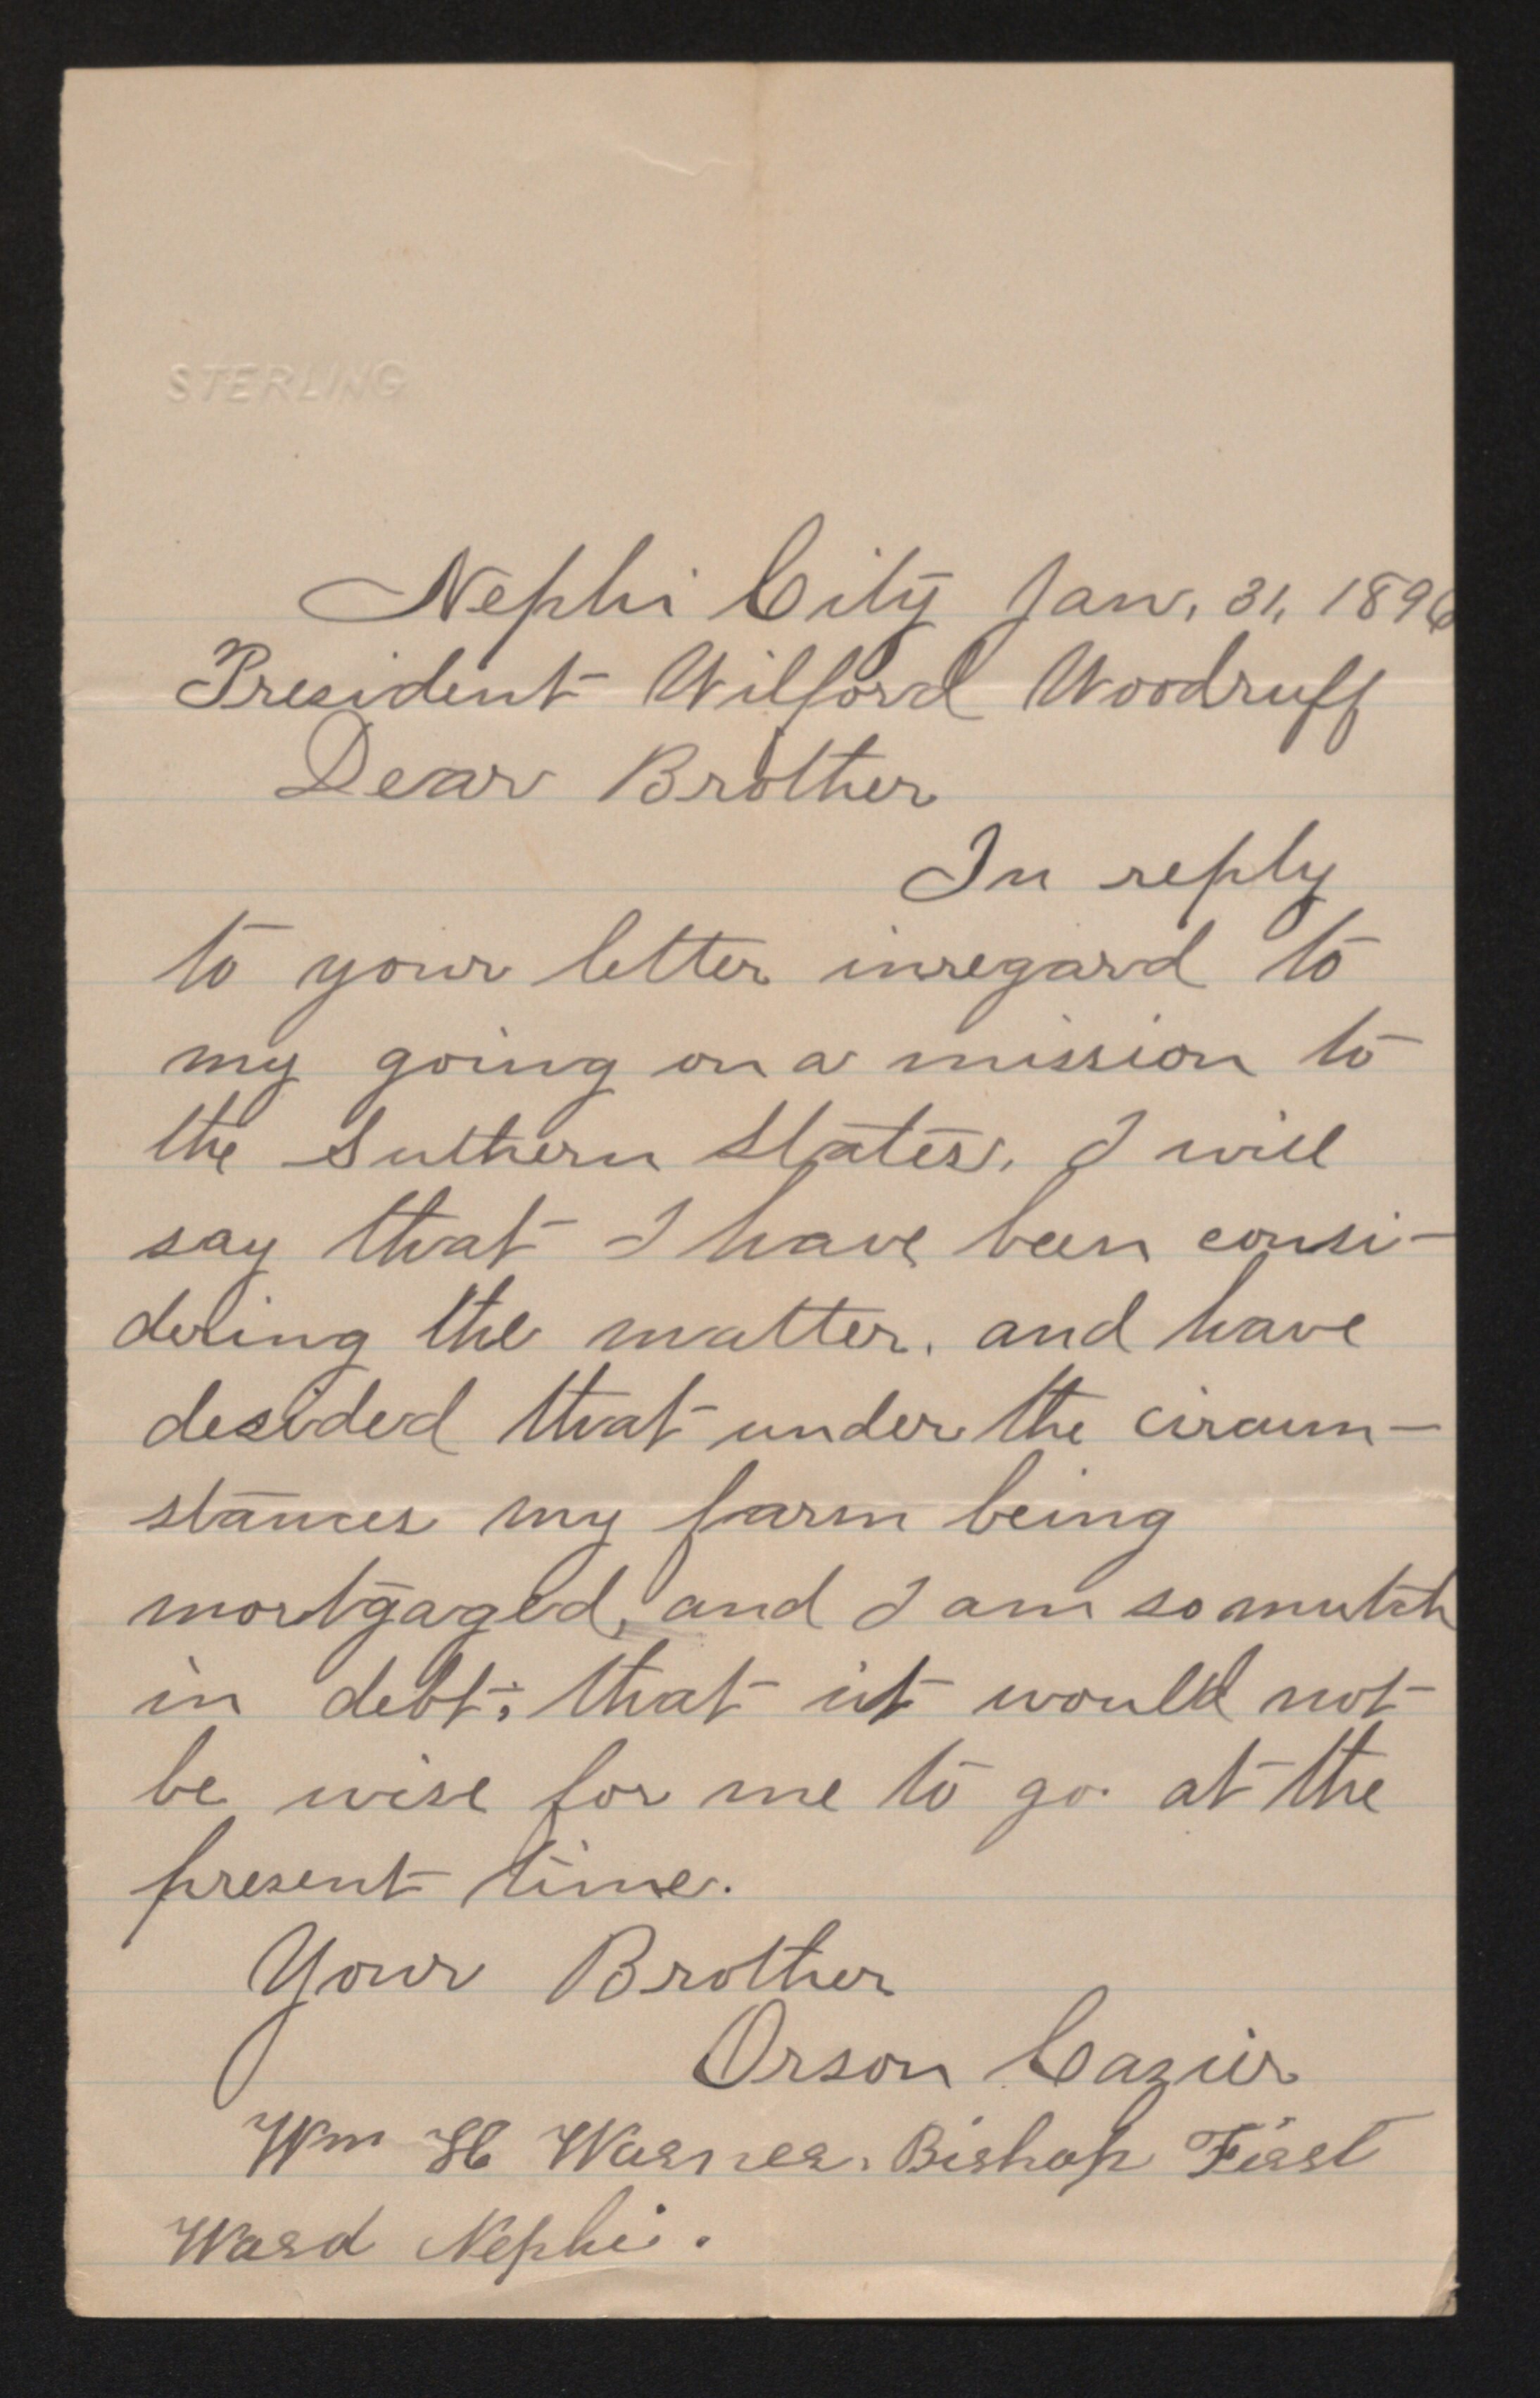 STERLING
Nephi City Jan, 31, 1896
President Wilford Woodruff
Dear Brother
In reply
to your letter inregard to
my going on a mission to
the Suthern States. I will
say that I have been consi-
dering the matter. and have
desided that under the circum-
stances my farm being
mortgaged, and I am so mutch
in debt; that it would not
be wise for me to go. at the
present time.
Your Brother
Orson Cazier
Wm H Warner. Bishop First
Ward Nephi.